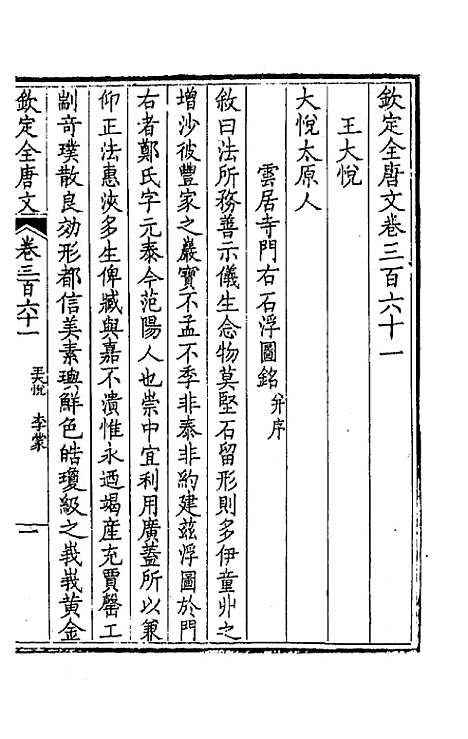 欽定全唐文卷三百六十一
王大悅
大悅太原人
雲居寺門右石浮圖銘并序
敘曰法所務善示儀生念物莫堅石留形則多伊童丱之
增沙彼豐家之嚴寶不孟不季非泰非約建茲浮圖於門
右者鄭氏字元泰今范陽人也崇中宜利用廣蓋所以兼
仰正法惠浹多生俾臧與嘉不潰惟永迺竭產充賈罄工
劀奇璞散良効形都信美素璵鮮色皓瓊級之峩峩黃金
欽定全唐文 卷三百六十一 王大悅 李蒙 一